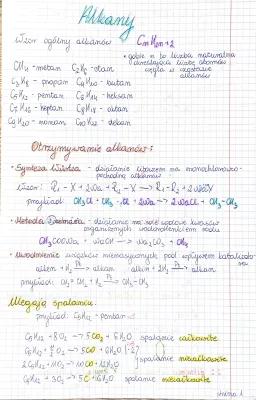 Alkany
Wzór ogólny alkanów CnH2n+2
gdzie n to liczba naturalna
określająca liczbę atomów
węgla w cząsteczce
alkanów
CH4 - metan C2H6 - etan
C3H8 - propan C4H10 - butan
C5H12 - pentan C6H14 - heksan
C7H16 - heptan C8H18 - oktan
C9H20 - nonan C10H22 - dekan
Otrzymywanie alkanów:
• Synteza Würtza - działanie litowcem na monohalogenową
pochodną alkanów
wzór: R1-X + 2Na + R2-X → R1-R2 + 2NaX
przykład: CH3Cl + CH3-Cl + 2Na → 2NaCl + CH3-CH3
• Metoda Dumasa - działanie na sole sodowe kwasów
organicznych wodorotlenkiem sodu
CH3COONa + NaOH → Na2CO3 + CH4
• Uwodornienie związków nienasyconych pod wpływem katalizatora
alken + H2 → alkan alkin + 2H2 → alkan
przykład: CH2=CH2 + H2 → CH3-CH3
Ulegają spalaniu:
przykład: C5H12 - pentan
C5H12 + 8O2 → 5CO2 + 6H2O spalanie całkowite
C5H12 + O2 → 5CO + 6H2O /·2
2C5H12 + 11O2 → 10CO + 12H2O
spalanie niecałkowite
C5H12 + 3O2 → 5C + 6H2O spalanie niecałkowite
strona 1